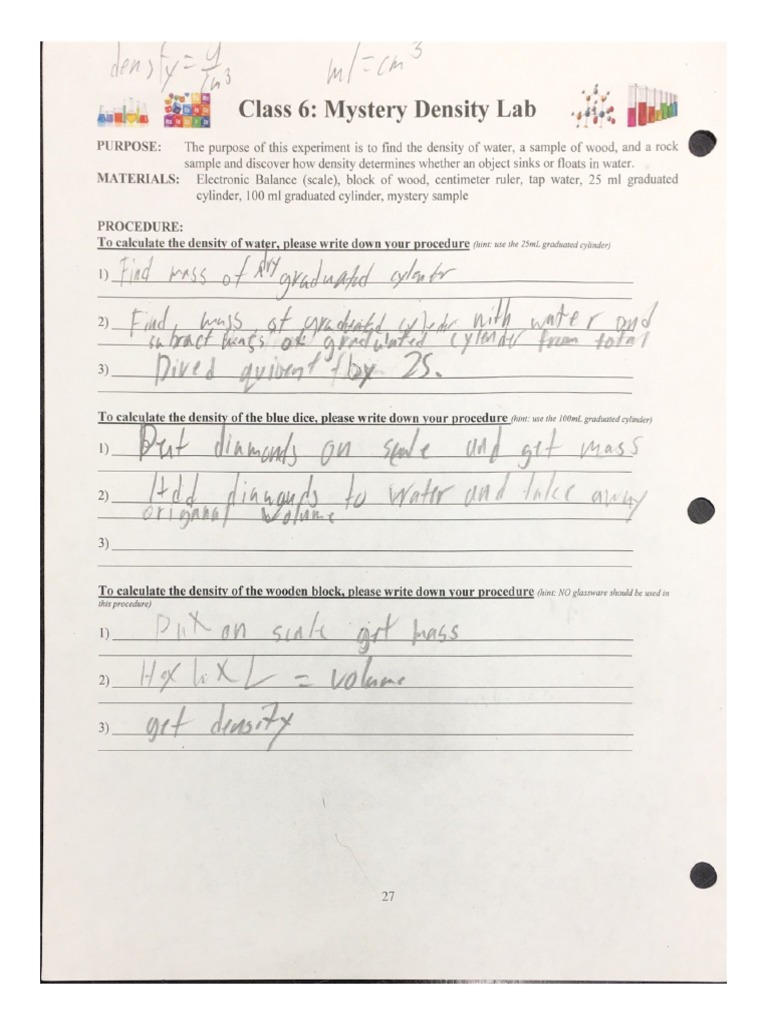 density = g/cm³ ml = cm³
Class 6: Mystery Density Lab
PURPOSE: The purpose of this experiment is to find the density of water, a sample of wood, and a rock
sample and discover how density determines whether an object sinks or floats in water.
MATERIALS: Electronic Balance (scale), block of wood, centimeter ruler, tap water, 25 ml graduated
cylinder, 100 ml graduated cylinder, mystery sample
PROCEDURE:
To calculate the density of water, please write down your procedure (hint: use the 25mL graduated cylinder)
1) Find mass of dry graduated cylenter
2) Find mass of graduated cylender with water and
subtract mass of gradulated cylender from total
3) Dived quivent by 25.
To calculate the density of the blue dice, please write down your procedure (hint: use the 100mL graduated cylinder)
1) Put diamonds on scale and get mass
2) Add diamonds to water and take away
origanal volume
3)
To calculate the density of the wooden block, please write down your procedure (hint: NO glassware should be used in
this procedure)
1) Put on scale get mass
2) H x W x L = volume
3) get density
27